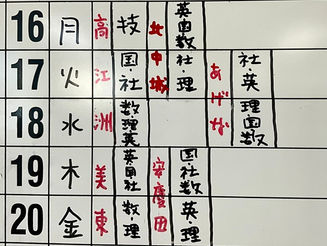 16 月 高 技 北 英国数
17 火 江 国・社 中 社・理 あげな 社・英
18 水 洲 数・理英 城 理国数
19 木 美 英国社 安慶田 国・社数
20 金 東 数・理 英・理